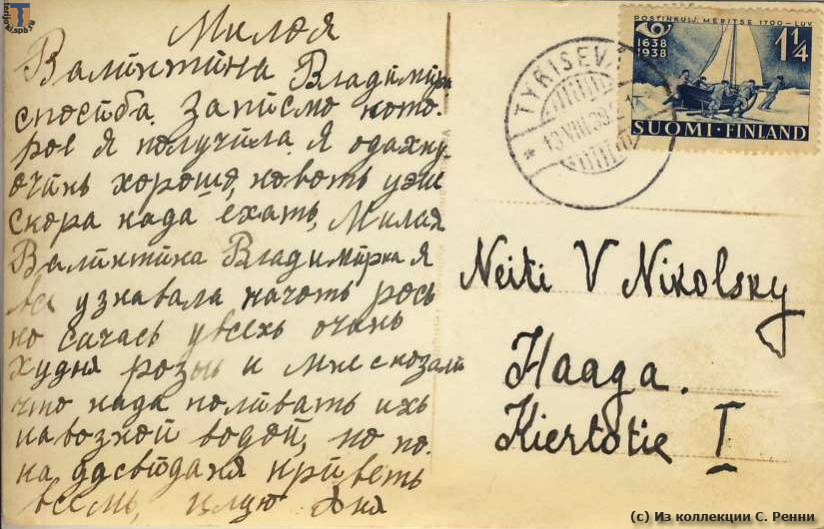 Милая
Валинтина Владимиры
спосиба. За писмо кото-
рое я получила. я одахну
очинь хорошо, но воть уже
скора нада ехать, Милая
Валинтина Владимирна Я
все узнавала начоть розь
но сичась у всехь очинь
худыя розы и мне сказали
что нада поливать ихь
навозной водой, но по-
ка досвиданя приветь
всемь, цилую Аня
POSTINKULJ. MERITSE 1700-LUV.
1638
1938
1¼
SUOMI-FINLAND
TYRISEV
13.VIII.38
Neiti V Nikolsky
Haaga.
Kiertotie I
terijoki.spb.ru
(c) Из коллекции С. Ренни